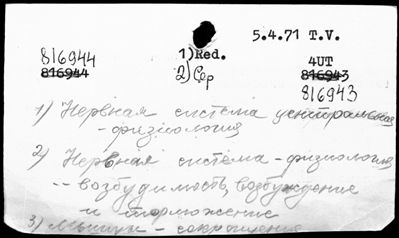 5.4.71 T.V.
816944 1) Red. 4UT
816944 2) Сер 816943
816943
1) Нервная система центральная
- физиология
2) Нервная система - физиология
-- возбудимость, возбуждение
и торможение
3) Мышцы - сокращение